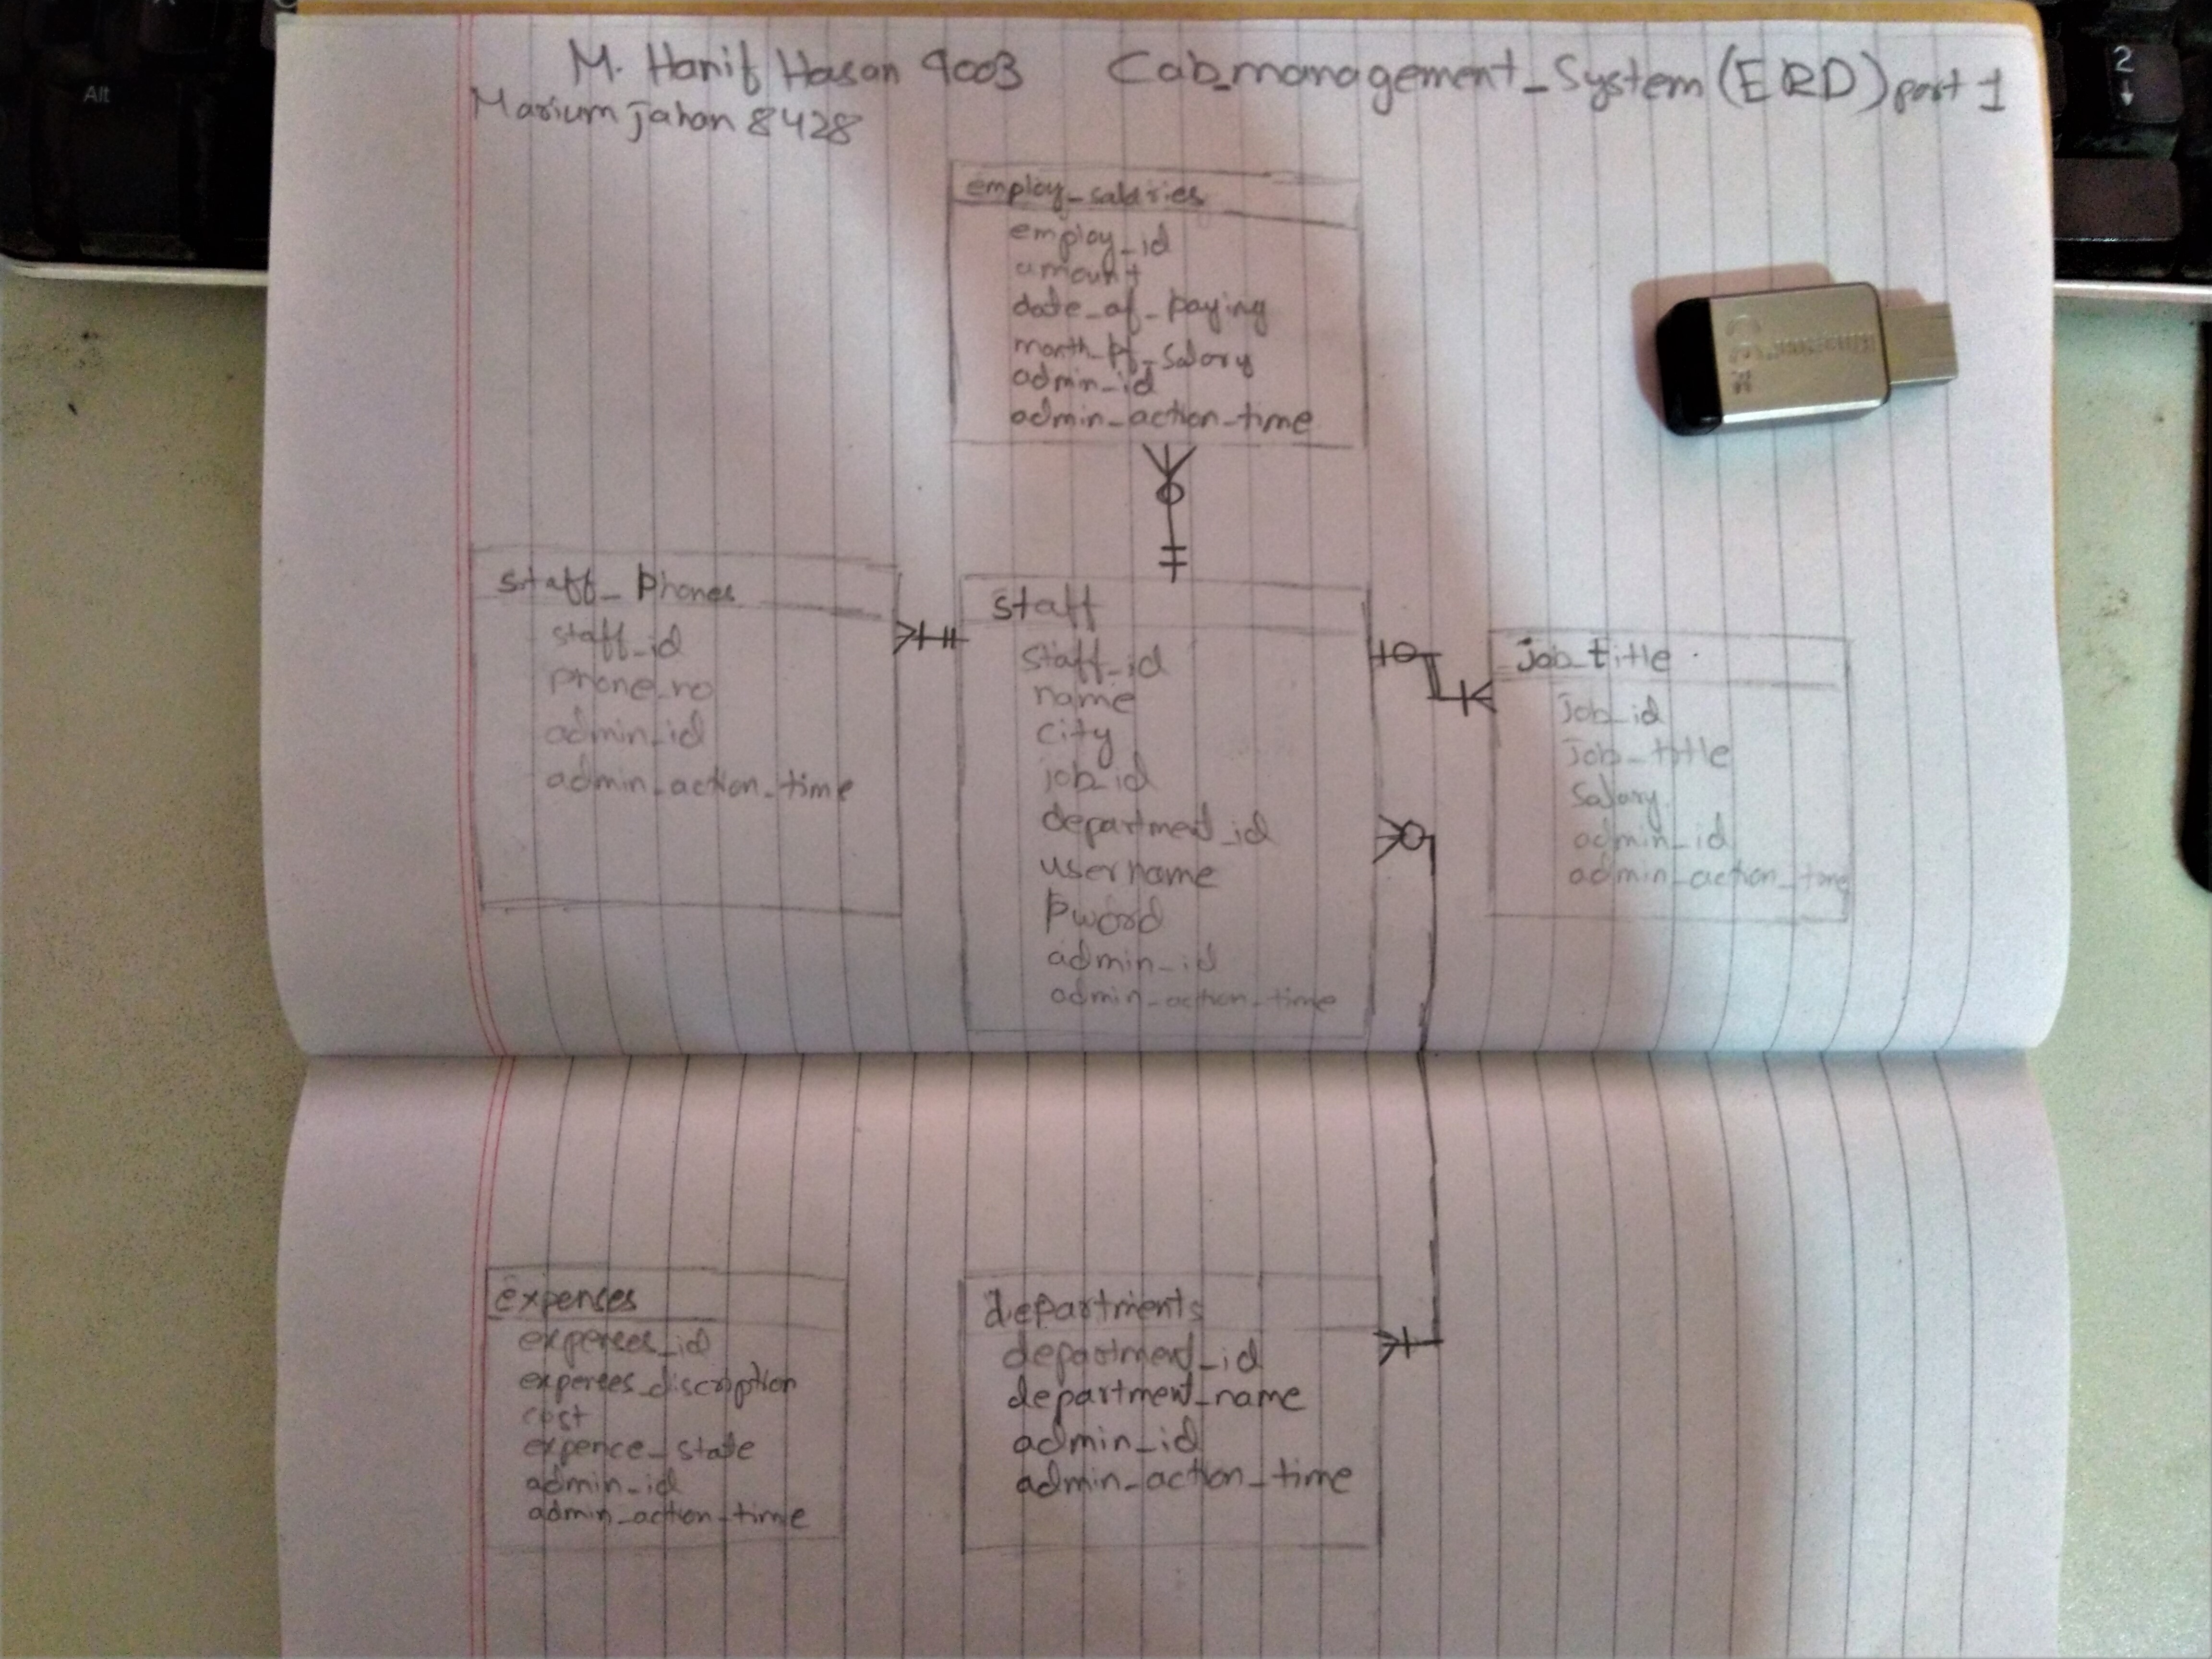 Alt
2
M. Hanif Hasan 9003 Cab_management_System (ERD) part 1
Marium Jahan 8428
employ_salaries
employ_id
amount
date_of_paying
month_of_salary
admin_id
admin_action_time
staff_Phones
staff_id
phone_no
admin_id
admin_action_time
staff
staff_id
name
city
job_id
department_id
username
Pword
admin_id
admin_action_time
Job_title
Job_id
Job_title
Salary
admin_id
admin_action_time
expenses
expenses_id
expenses_discription
cost
expence_state
admin_id
admin_action_time
departments
department_id
department_name
admin_id
admin_action_time